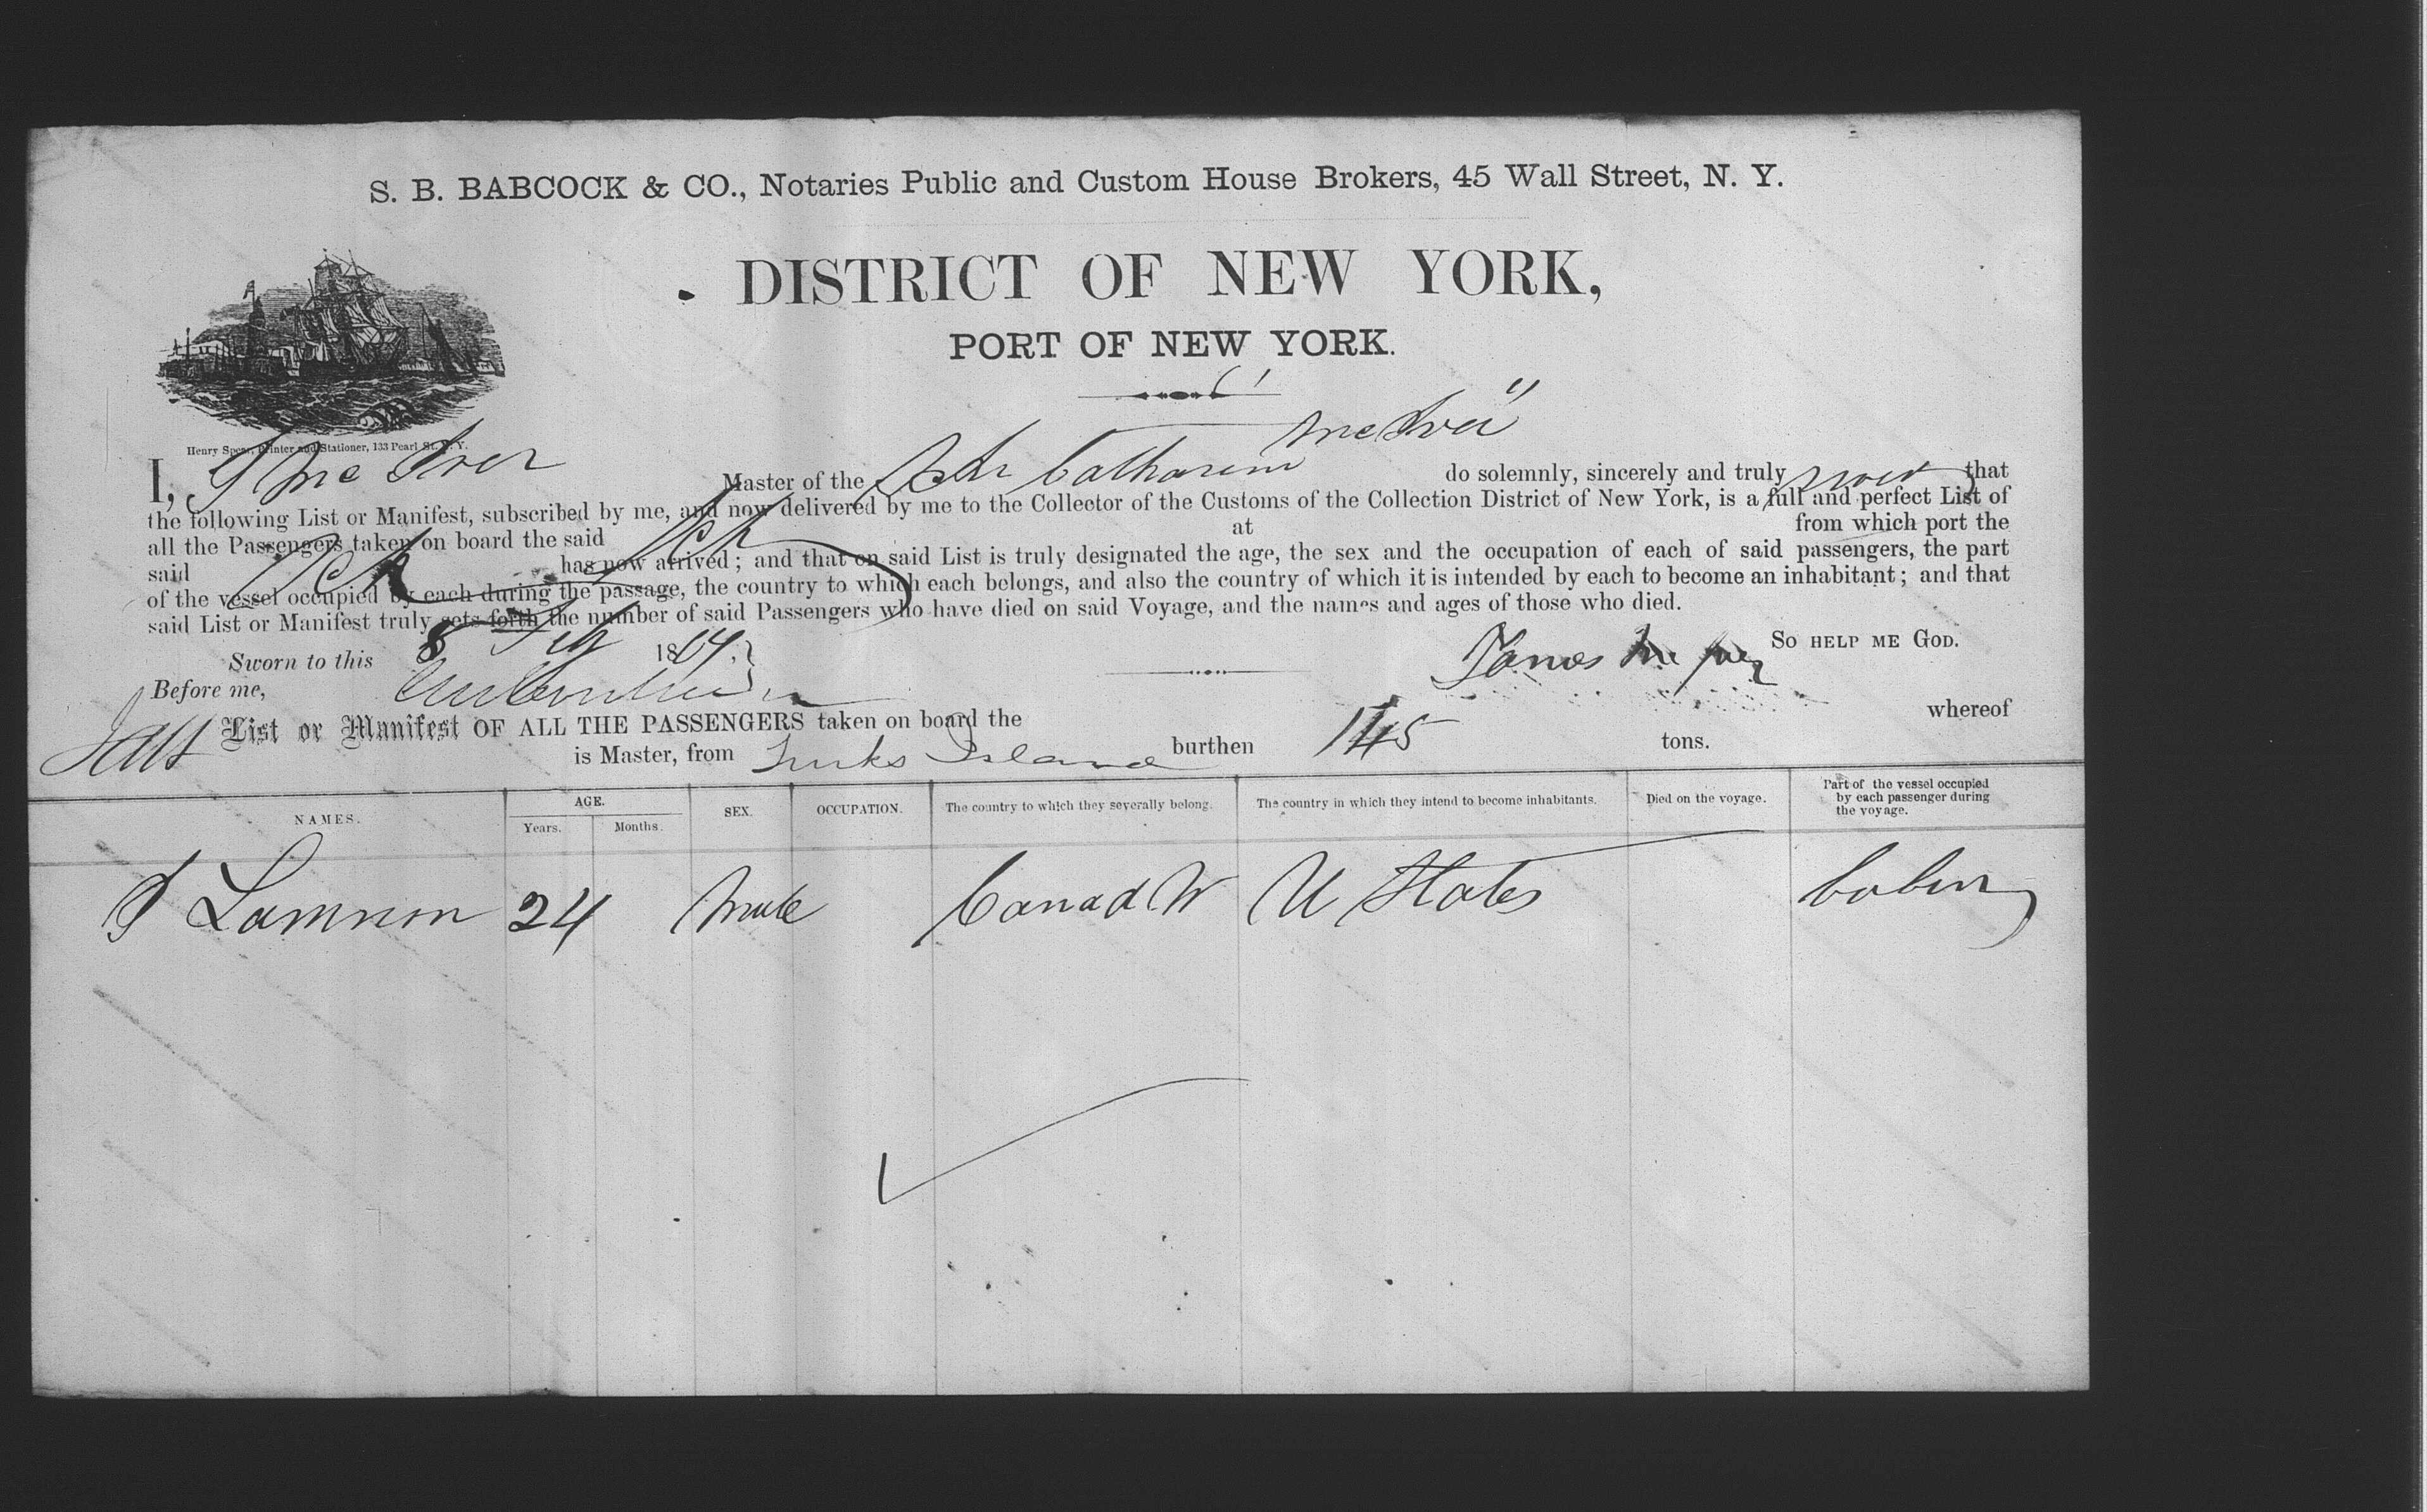 S. B. BABCOCK & CO., Notaries Public and Custom House Brokers, 45 Wall Street, N. Y.
DISTRICT OF NEW YORK,
PORT OF NEW YORK.
Henry Spear, Printer and Stationer, 133 Pearl St. N. Y.
I, J Mc Iver Master of the Schr Catharine McIver do solemnly, sincerely and truly swear that
the following List or Manifest, subscribed by me, and now delivered by me to the Collector of the Customs of the Collection District of New York, is a full and perfect List of
all the Passengers taken on board the said Sch at from which port the
said Sch has now arrived; and that on said List is truly designated the age, the sex and the occupation of each of said passengers, the part
of the vessel occupied by each during the passage, the country to which each belongs, and also the country of which it is intended by each to become an inhabitant; and that
said List or Manifest truly sets forth the number of said Passengers who have died on said Voyage, and the names and ages of those who died.
SO HELP ME GOD.
Sworn to this 8 Feb 1864.
James Mc Iver
Before me,
List or Manifest OF ALL THE PASSENGERS taken on board the whereof
is Master, from Turks Island burthen 145 tons.
NAMES. AGE. Years. Months. SEX. OCCUPATION. The country to which they severally belong. The country in which they intend to become inhabitants. Died on the voyage. Part of the vessel occupied by each passenger during the voyage.
Lamnon 24 Male Canad W U States Cabin